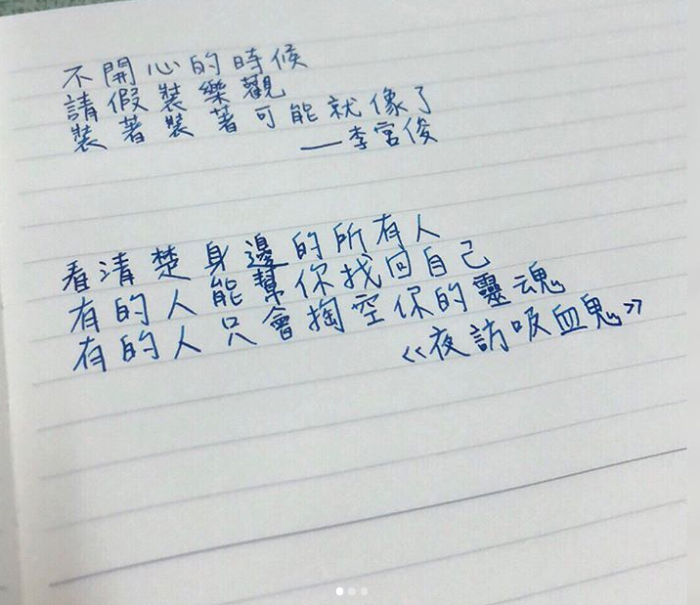 不開心的時候
請假裝樂觀
裝著裝著可能就像了
——李宮俊
看清楚身邊的所有人
有的人能幫你找回自己
有的人只會掏空你的靈魂
《夜訪吸血鬼》